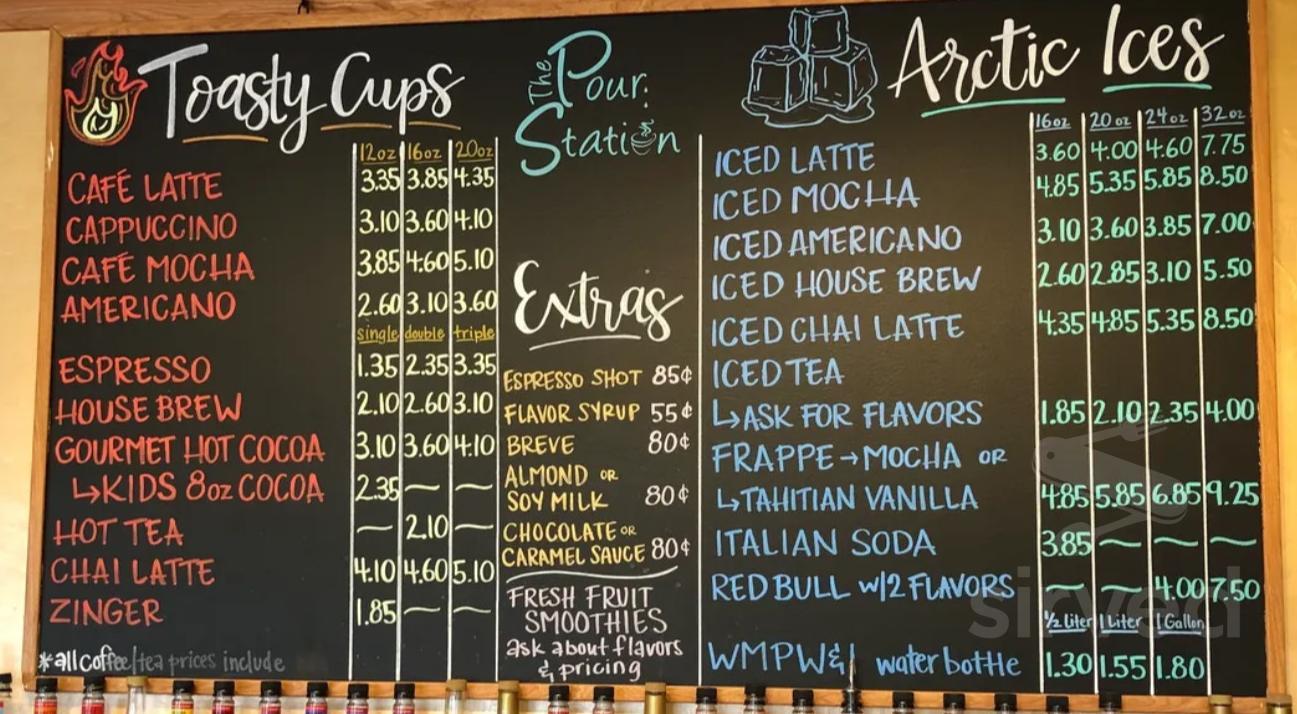 Toasty Cups
12oz 16oz 20oz
CAFÉ LATTE 3.35 3.85 4.35
CAPPUCCINO 3.10 3.60 4.10
CAFÉ MOCHA 3.85 4.60 5.10
AMERICANO 2.60 3.10 3.60
single double triple
ESPRESSO 1.35 2.35 3.35
HOUSE BREW 2.10 2.60 3.10
GOURMET HOT COCOA 3.10 3.60 4.10
↳KIDS 8oz COCOA 2.35 — —
HOT TEA — 2.10 —
CHAI LATTE 4.10 4.60 5.10
ZINGER 1.85 — —
*all coffee/tea prices include
The Pour
Station
Extras
ESPRESSO SHOT 85¢
FLAVOR SYRUP 55¢
BREVE 80¢
ALMOND OR
SOY MILK 80¢
CHOCOLATE OR
CARAMEL SAUCE 80¢
FRESH FRUIT
SMOOTHIES
ask about flavors
& pricing
Arctic Ices
16oz 20oz 24oz 32oz
ICED LATTE 3.60 4.00 4.60 7.75
ICED MOCHA 4.85 5.35 5.85 8.50
ICED AMERICANO 3.10 3.60 3.85 7.00
ICED HOUSE BREW 2.60 2.85 3.10 5.50
ICED CHAI LATTE 4.35 4.85 5.35 8.50
ICED TEA
↳ASK FOR FLAVORS 1.85 2.10 2.35 4.00
FRAPPE→MOCHA OR
↳TAHITIAN VANILLA 4.85 5.85 6.85 9.25
ITALIAN SODA 3.85 — — —
RED BULL w/2 FLAVORS — — 4.00 7.50
½ Liter 1 Liter 1 Gallon
WMPW&I water bottle 1.30 1.55 1.80
sirved